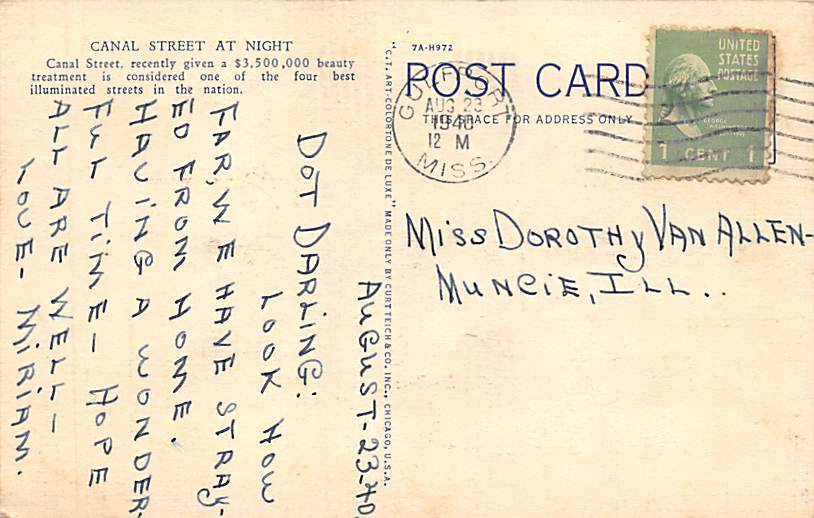 CANAL STREET AT NIGHT
Canal Street, recently given a $3,500,000 beauty
treatment is considered one of the four best
illuminated streets in the nation.
AUGUST-23-40
DOT DARLING:
LOOK HOW
FAR, WE HAVE STRAY-
ED FROM HOME.
HAVING A WONDER-
FUL TIME- HOPE
ALL ARE WELL-
LOVE- MIRIAM.
"C.T. ART-COLORTONE DE LUXE" MADE ONLY BY CURT TEICH & CO., INC., CHICAGO, U.S.A.
7A-H972
POST CARD
THIS SPACE FOR ADDRESS ONLY
GULFPORT
AUG 23
1940
12 M
MISS.
UNITED
STATES
POSTAGE
GEORGE
WASHINGTON
1 CENT 1
MISS DOROTHY VAN ALLEN-
MUNCIE, ILL..